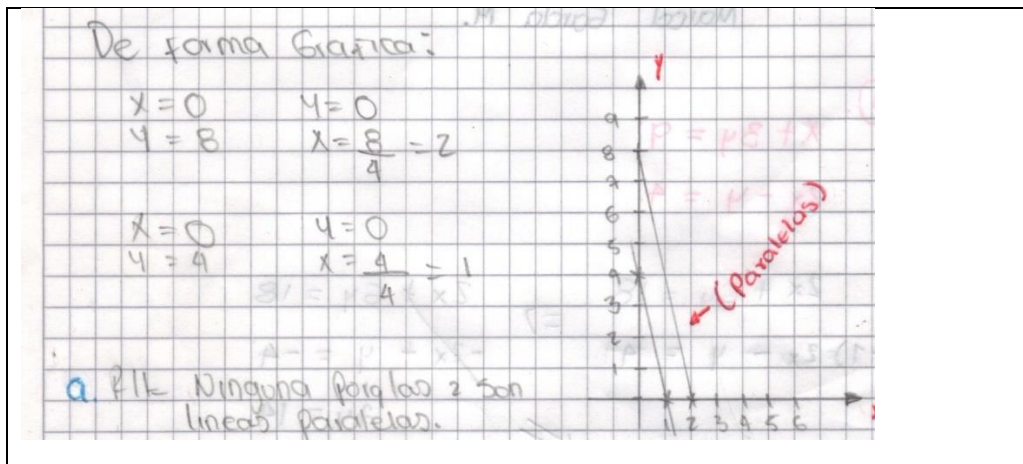 De forma Grafica:
x = 0 y = 0
y = 8 x = 8/4 = 2
x = 0 y = 0
y = 4 x = 4/4 = 1
a. Ninguna 2 son
lineas paralelas.
y
9
8
7
6
5
4
3
2
1
1 2 3 4 5 6
x
(Paralelas)